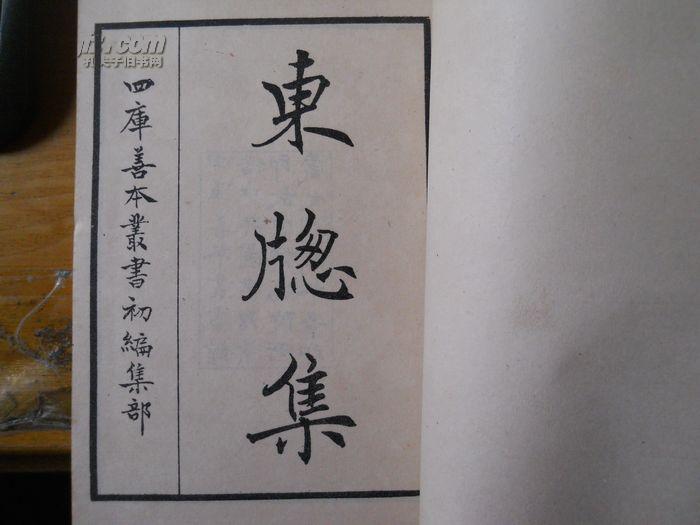 東牕集
四庫善本叢書初編集部
孔夫子旧书网